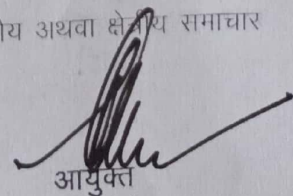 अथवा क्षेत्रीय समाचार
आयुक्त